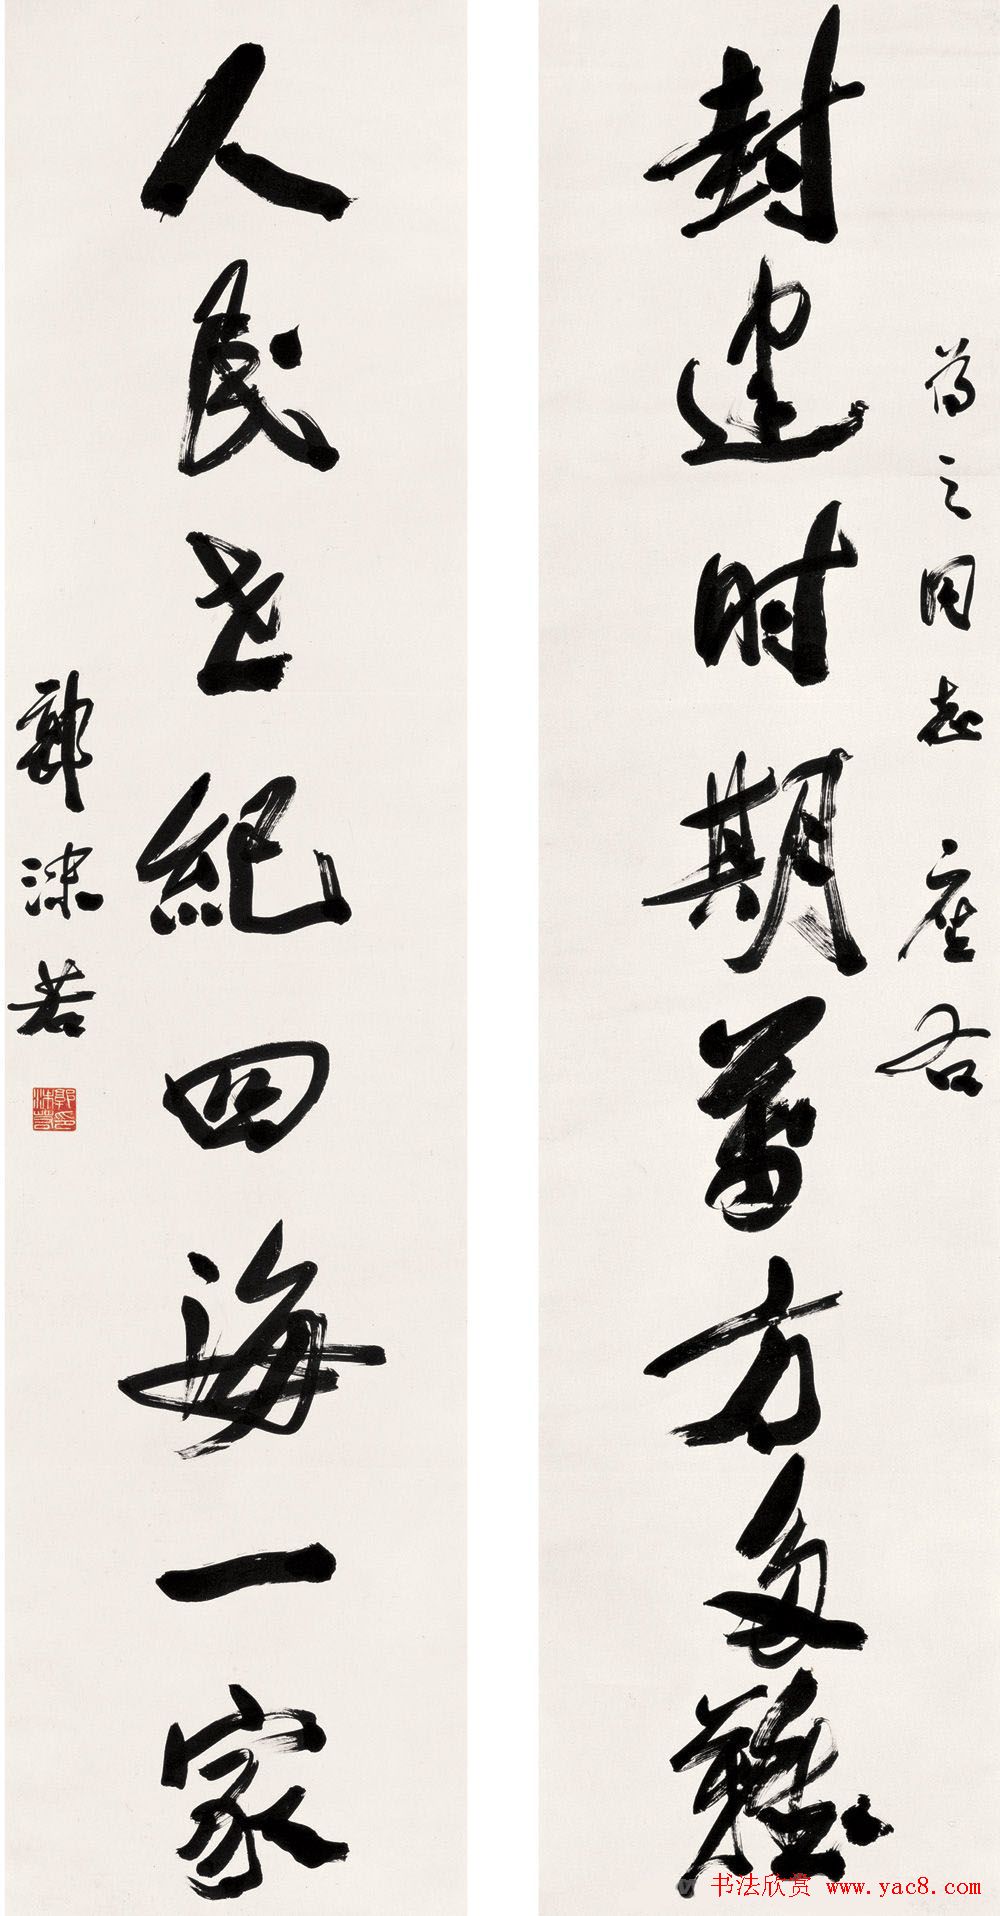 之同志座右
封建时期萬方多難
人民世紀四海一家
郭沫若
书法欣赏 www.yac8.com